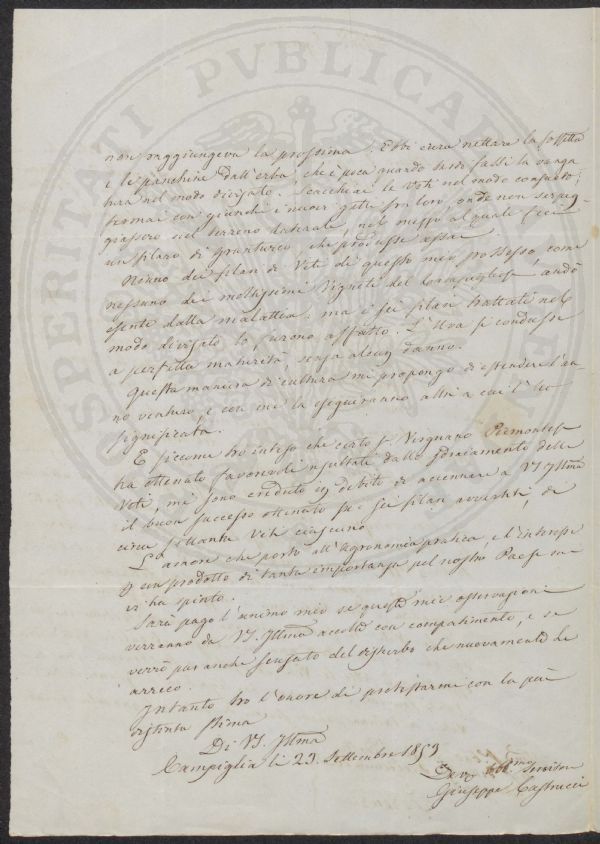 non raggiungeva la prossima. Ebbi cura nettare la fossetta
e le panchine dall'erba, che è poca quando
nel modo divisato. Scacchiai le Viti nel modo consueto;
fermai con giunchi i nuovi getti fra loro, onde non serpeg-
giassero nel terreno laterale, nel mezzo al quale feci
un filaro di granturco, che produsse assai.
Niuno dei filari di Viti di questo mio possesso, come
nessuno dei moltissimi vigneti del Campigliese, andò
esente dalla malattia; ma i sei filari trattati nel
modo divisato lo furono affatto. L'Uva si condusse
a perfetta maturità, senza alcun danno.
Questa maniera di cultura mi propongo di estendere l'an-
no venturo, e con me la eseguiranno altri a cui l'ho
significata.
E siccome ho inteso che certo Sr. Vergnano Piemontese
ha ottenuto favorevoli risultati dallo delle
Viti, mi sono creduto in debito di accennare a VS Illma
il buon successo ottenuto su sei filari, di
circa settanta Viti ciascuno.
L'amore che porto all'Agronomia pratica, e l'interesse
di un prodotto di tanta importanza pel nostro Paese
vi ha spinto.
Sarà pago l'animo mio se queste mie osservazioni
verranno da VS. Illma accolte con compatimento, e se
verrò pur anche scusato del disturbo che nuovamente le
arreco.
Intanto ho l'onore di protestarmi con la più
distinta stima
Di VS. Illma
Campiglia li 23. Settembre 1853
Dev. Obbl.mo Servitore
Giuseppe Castrucci